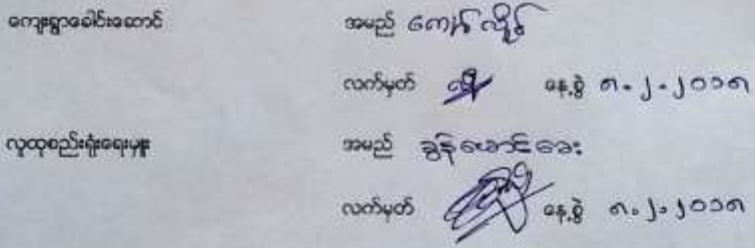 ကျေးရွာခေါင်းဆောင် အမည် ကျော်လှိုင်
လက်မှတ် နေ့စွဲ ၈-၂-၂၀၁၈
လူထုစည်းရုံးရေးမှူး အမည် ခွန်အောင်ဒေး
လက်မှတ် နေ့စွဲ ၈.၂.၂၀၁၈